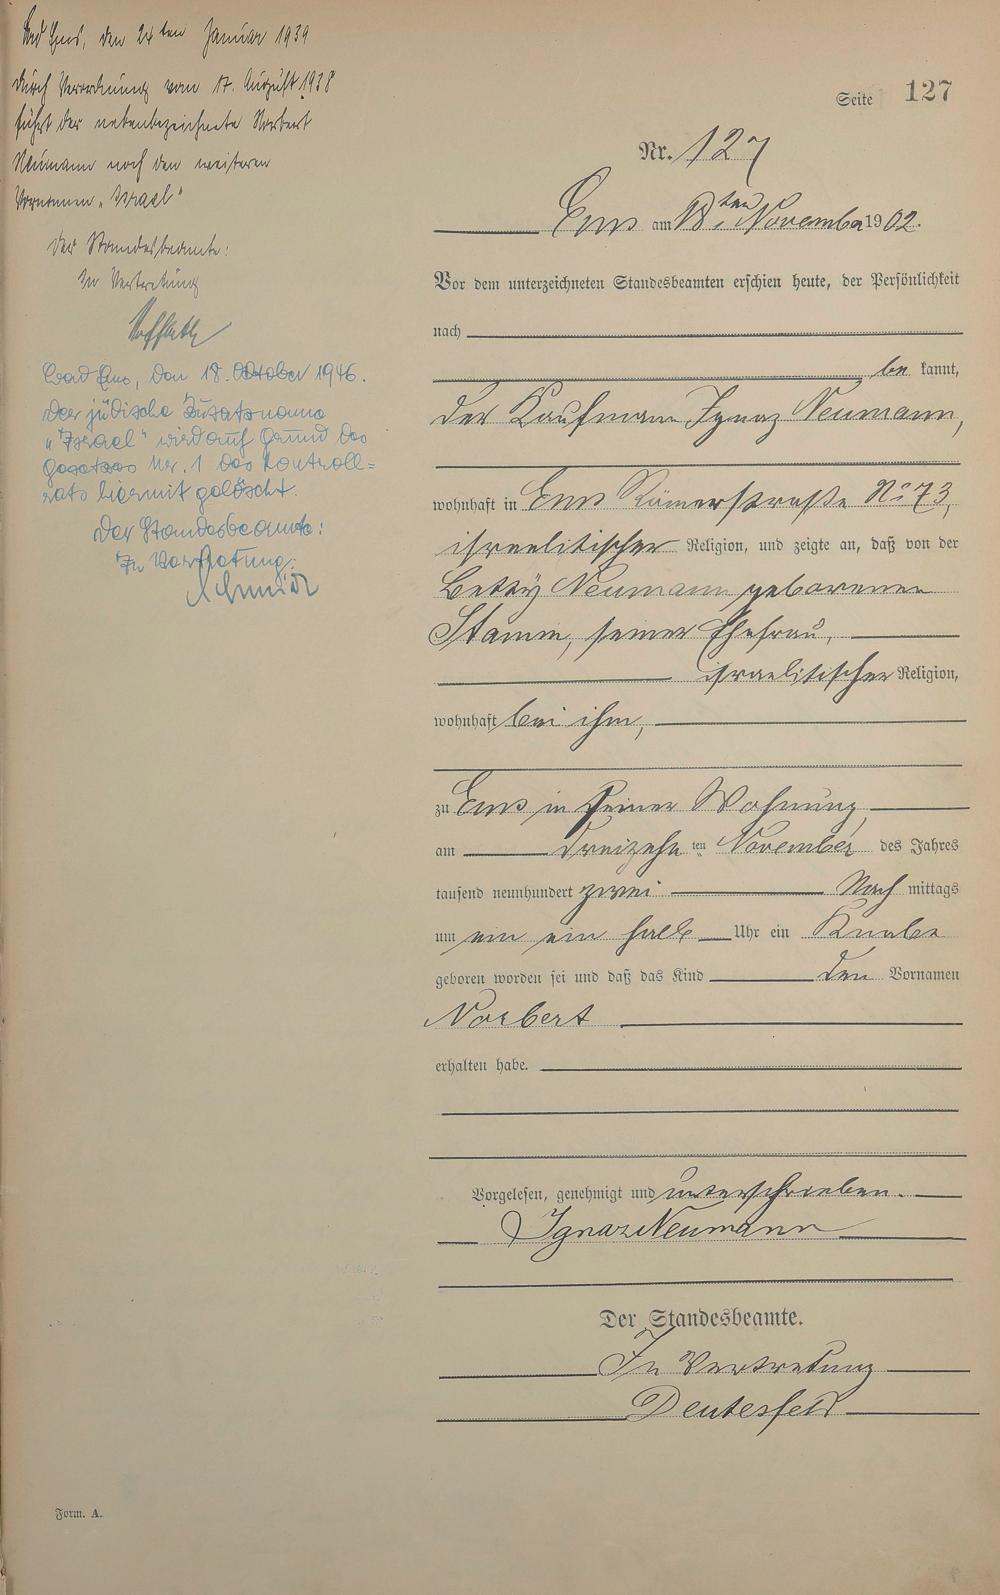 Bad Ems, den 24ten Januar 1939
Durch Verordnung vom 17. August 1938
führt der nebenbezeichnete Norbert
Neumann noch den weiteren
Vornamen „Israel"
Der Standesbeamte:
In Vertretung
Bad Ems, den 18. Oktober 1946.
Der jüdische Zusatzname
„Israel" wird auf Grund des
Gesetzes Nr. 1 des Kontroll=
rats hiermit gelöscht.
Der Standesbeamte:
In Vertretung:
Schmidt
Seite 127
Nr. 127
Ems am 18ten November 1902.
Vor dem unterzeichneten Standesbeamten erschien heute, der Persönlichkeit
nach
be kannt,
der Kaufmann Ignaz Neumann,
wohnhaft in Ems Römerstraße No 73,
israelitischer Religion, und zeigte an, daß von der
Betty Neumann geborenen
Stamm, seiner Ehefrau,
israelitischer Religion,
wohnhaft bei ihm,
zu Ems in seiner Wohnung,
am dreizehn ten November des Jahres
tausend neunhundert zwei Nach mittags
um ein ein halb Uhr ein Knabe
geboren worden sei und daß das Kind den Vornamen
Norbert
erhalten habe.
Vorgelesen, genehmigt und unterschrieben.
Ignaz Neumann
Der Standesbeamte.
In Vertretung
Deutesfeld
Form. A.